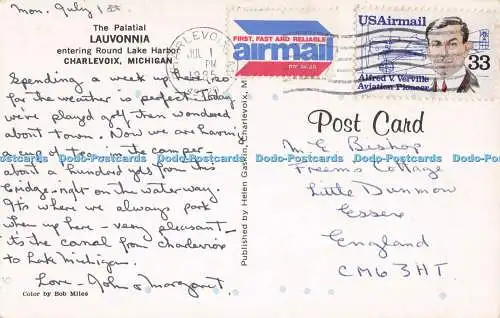 Mon. July 1st
The Palatial
LAUVONNIA
entering Round Lake Harbor
CHARLEVOIX, MICHIGAN
Spending a week up here, so
far the weather is perfect. Today
we've played golf then wondered
about town. Now we are having
a cup of tea in the camper -
about a hundred yds from this
bridge - right on the waterway.
It's where we always park
when up here - very pleasant -
it's the canal from Charlevoix
to Lake Michigan.
Love - John & Margaret.
Color by Bob Miles
Published by Helen Gaskin, Charlevoix, M
JUL 1
PM
1985
FIRST, FAST AND RELIABLE
airmail
USAirmail
33
Alfred V. Verville
Aviation Pioneer
Post Card
M. E. Bishop
Freems Cottage
Little Dunmow
Essex
England
CM6 3HT.
Postcards www.danpostcards.com